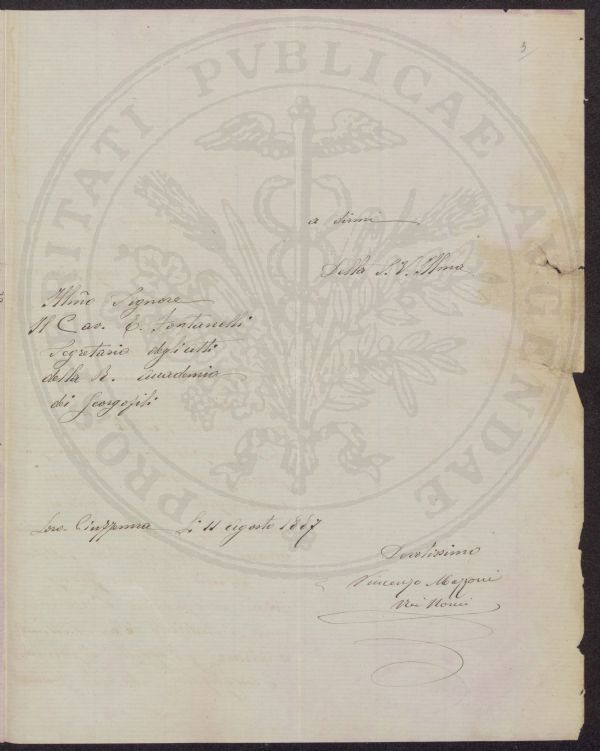 3
PROSPERITATI PVBLICAE AVGENDAE
a dirmi
Della S. V. Illma
Illmo Signore
Il Cav. C. Fontanelli
Segretario degli atti
della R. Accademia
dei Georgofili
Loro Ciuffenna Li 11 Agosto 1887
Devotissimo
Vincenzo Mazzoni